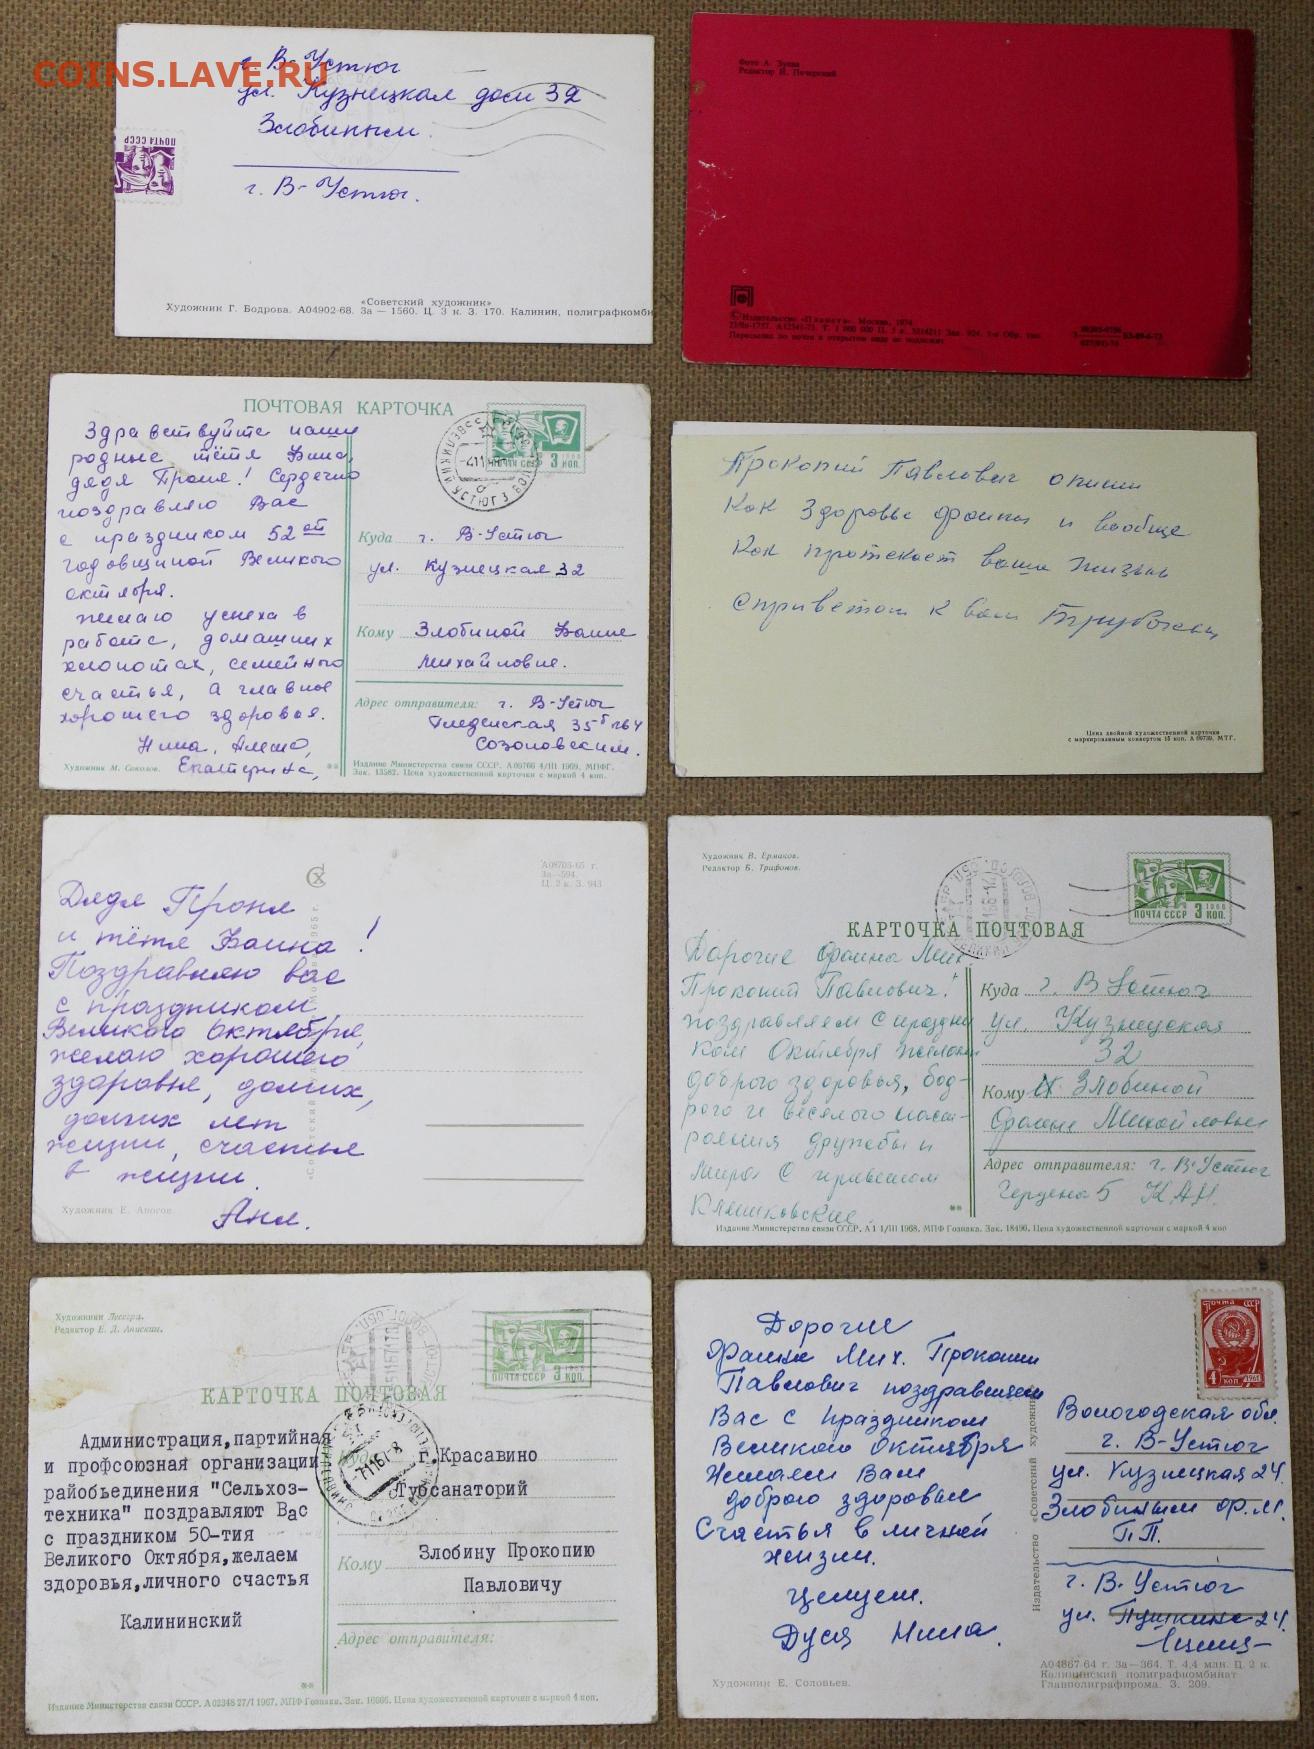 COINS.LAVE.RU
г. В-Устюг
ул. Кузнецкая дом 32
Злобиным.
г. В-Устюг.
ПОЧТА СССР
«Советский художник»
Художник Г. Бодрова. А04902-68. За — 1560. Ц. 3 к. З. 170. Калинин, полиграфкомби
Фото А. Зуева
Редактор И. Печерский
© Издательство «Планета». Москва, 1974
Пересылка по почте в открытом виде не подлежит
ПОЧТОВАЯ КАРТОЧКА
ПОЧТА СССР 3 КОП. 1966
Здравствуйте наши
родные тётя Фаина,
дядя Проня! Сердечно
поздравляю Вас
с праздником 52ой
годовщиной Великого
октября.
Желаю успеха в
работе, домашних
хлопотах, семейного
счастья, а главное
хорошего здоровья.
Нина, Алеша,
Екатерина,
Куда г. В-Устюг
ул. Кузнецкая 32
Кому Злобиной Фаине
Михайловне.
Адрес отправителя: г. В-Устюг
Гледенская 35б кв 4
Созоновских.
Художник М. Соколов.
**
Издание Министерства связи СССР. А 09766 4/III 1969. МПФГ.
Зак. 13582. Цена художественной карточки с маркой 4 коп.
Прокопий Павлович опиши
Как здоровье Фаины и вообще
Как протекает ваша жизнь
С приветом к вам
Цена двойной художественной карточки
с маркированным конвертом 15 коп. А 09739. МТГ.
А08703-65 г.
За—594.
Ц. 2 к. З. 943
Дядя Проня
и тётя Фаина!
Поздравляю вас
с праздником
Великого Октября,
желаю хорошего
здоровья, долгих,
долгих лет
жизни, счастья
в жизни.
Аня.
Художник Е. Аносов.
Художник В. Ермаков.
Редактор Б. Трифонов.
ПОЧТА СССР 3 КОП. 1966
КАРТОЧКА ПОЧТОВАЯ
Дорогие Фаина Мих.
Прокопий Павлович!
поздравляем с праздни
ком Октября желаем
доброго здоровья, бод-
рого и веселого наст-
роения дружбы и
мира С приветом
Клешковские.
Куда г. В Устюг
ул. Кузнецкая
32
Кому Злобиной
Фаине Михайловне
Адрес отправителя: г. В-Устюг
Герцена 5 К.А.Н.
**
Издание Министерства связи СССР. А 1 1/III 1968. МПФ Гознака. Зак. 18496. Цена художественной карточки с маркой 4 коп
Художники Лесегри.
Редактор Е. Д. Анискин.
ПОЧТА СССР 3 КОП. 1966
КАРТОЧКА ПОЧТОВАЯ
Администрация,партийная
и профсоюзная организации
райобъединения "Сельхоз-
техника" поздравляют Вас
с праздником 50-тия
Великого Октября,желаем
здоровья,личного счастья
Калининский
Куда г.Красавино
Тубсанаторий
Кому Злобину Прокопию
Павловичу
Адрес отправителя:
**
Издание Министерства связи СССР. А 02348 27/I 1967. МПФ Гознака. Зак. 16666. Цена художественной карточки с маркой 4 коп.
Почта СССР
4 КОП 1961
Дорогие
Фаина Мих. Прокопий
Павлович поздравляем
Вас с праздником
Великого Октября
Желаем Вам
доброго здоровья
Счастья в личной
жизни.
Целуем.
Дуся Нина.
Вологодская обл.
г. В-Устюг
ул. Кузнецкая 24.
Злобиным Ф.М.
П.П.
г. В-Устюг
ул. Пушкина 24.
Издательство «Советский художник»
Художник Е. Соловьев.
А04867-64 г. За—364. Т. 4,4 млн. Ц. 2 к.
Калининский полиграфкомбинат
Главполиграфпрома. З. 209.